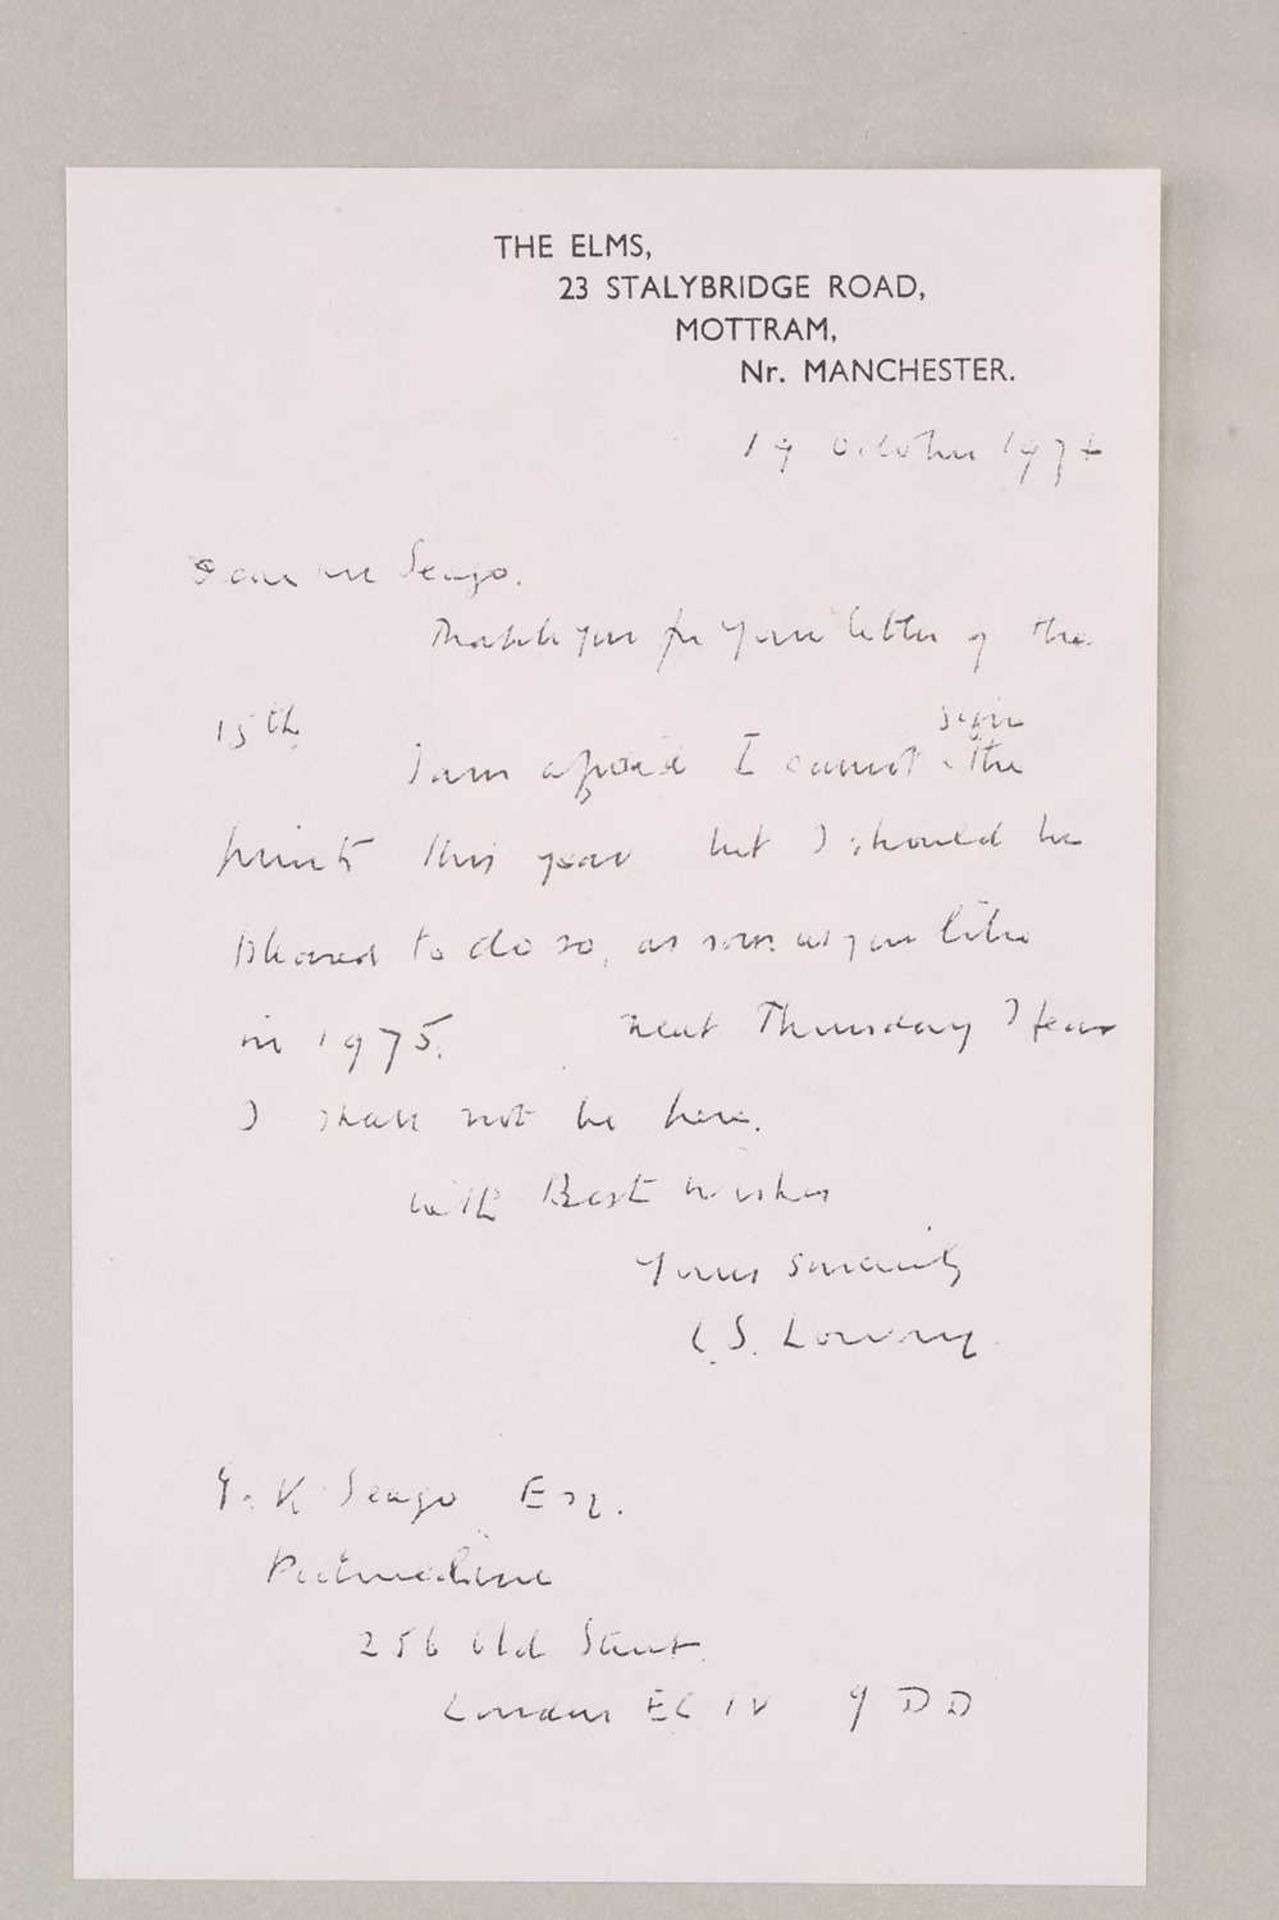 THE ELMS,
23 STALYBRIDGE ROAD,
MOTTRAM,
Nr. MANCHESTER.
19 October 1974
Dear Mr Seago.
Thank you for your letter of the
15th.
sign
I am afraid I cannot the
prints this year but I should be
pleased to do so, as soon as you like
in 1975. Next Thursday I fear
I shall not be here.
with Best wishes
Yours sincerely
L.S. Lowry.
K Seago Esq.
256 Old Street.
London EC 1V 9 DD